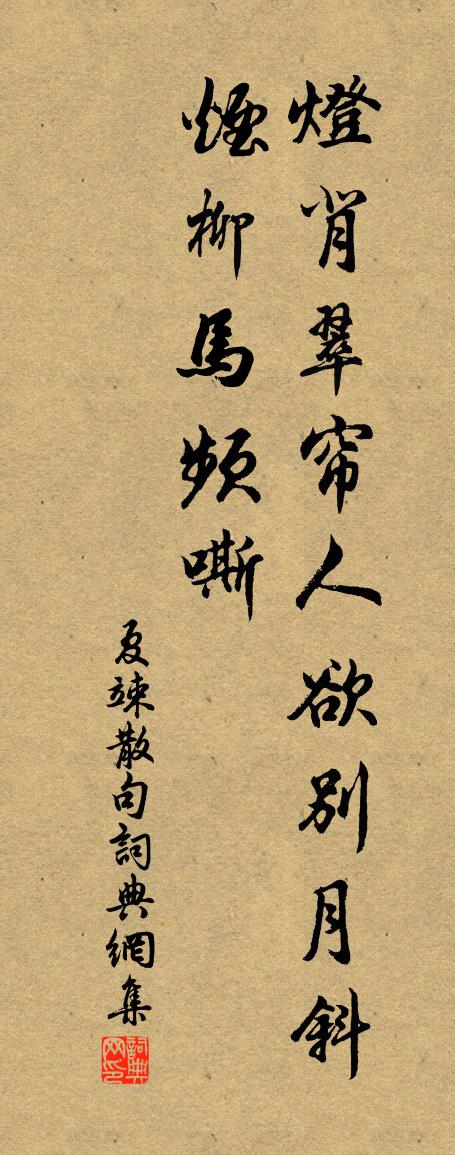 燈背翠帘人欲別月斜
煙柳馬頻嘶
夏竦散句詞典網集
詞典网印